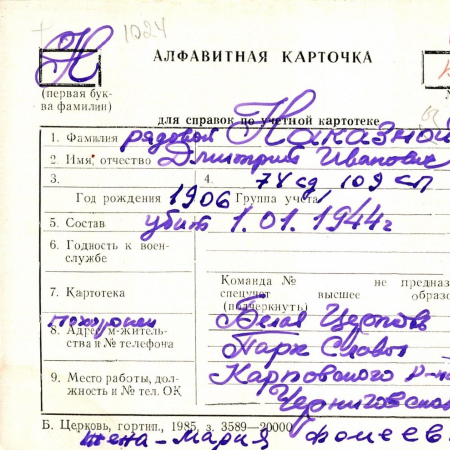 1024
Н
АЛФАВИТНАЯ КАРТОЧКА
(первая бук-
ва фамилии)
для справок по учетной картотеке
1. Фамилия рядовой Наказной
2. Имя, отчество Дмитрий Иванович
3. 4. 74 сд, 109 сп
Год рождения 1906 Группа учета
5. Состав убит 1.01.1944г
6. Годность к воен-
службе
Команда № не предназ
7. Картотека спецучет высшее образо
(подчеркнуть)
похоронен Белая Церковь
8. Адрес м-житель-
ства и № телефона Парк Славы
9. Место работы, дол-
жность и № тел. ОК
Карповского р-на
Черниговской
Б. Церковь, гортип., 1985, з. 3589—20000
жена - Мария Фомеев